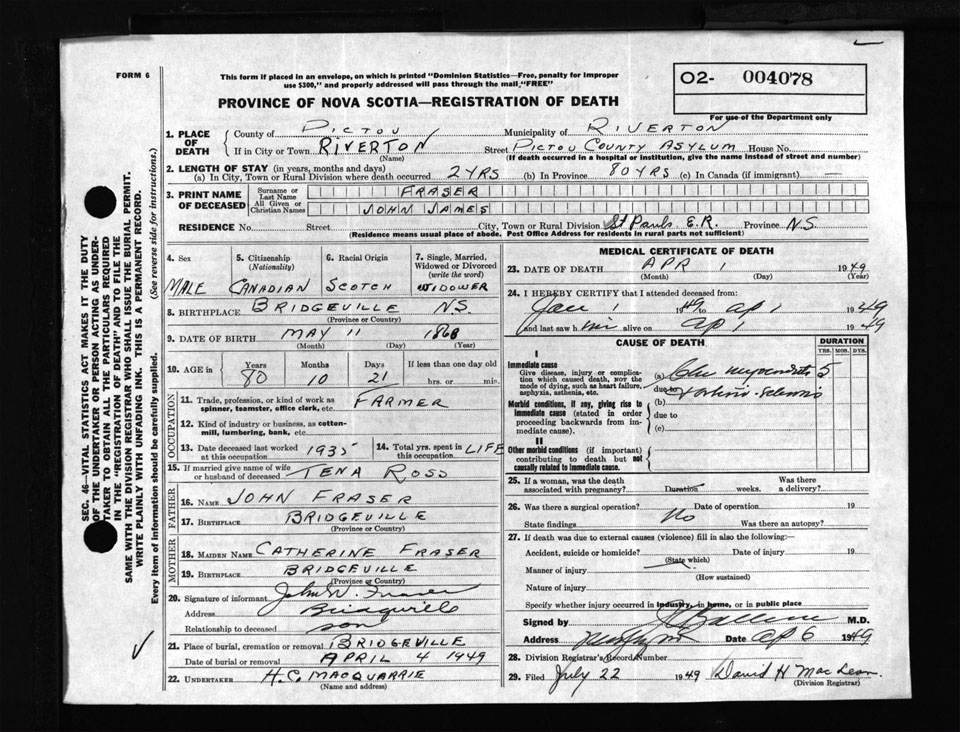 FORM 6
This form if placed in an envelope, on which is printed "Dominion Statistics—Free, penalty for improper
use $300," and properly addressed will pass through the mail "FREE"
O2- 004078
For use of the Department only
PROVINCE OF NOVA SCOTIA—REGISTRATION OF DEATH
1. PLACE OF DEATH
County of PICTOU Municipality of RIVERTON
If in City or Town RIVERTON Street PICTOU COUNTY ASYLUM House No.
(Name) (If death occurred in a hospital or institution, give the name instead of street and number)
2. LENGTH OF STAY (in years, months and days)
(a) In City, Town or Rural Division where death occurred 2 YRS (b) In Province 80 YRS (c) In Canada (if immigrant) —
3. PRINT NAME OF DECEASED
Surname or Last Name FRASER
All Given or Christian Names JOHN JAMES
RESIDENCE No. Street City, Town or Rural Division St Pauls E.R. Province N.S.
(Residence means usual place of abode. Post Office Address for residents in rural parts not sufficient)
4. Sex 5. Citizenship (Nationality) 6. Racial Origin 7. Single, Married, Widowed or Divorced (write the word)
MALE CANADIAN SCOTCH WIDOWER
8. BIRTHPLACE BRIDGEVILLE N.S.
(Province or Country)
9. DATE OF BIRTH MAY 11 1868
(Month) (Day) (Year)
10. AGE in Years Months Days If less than one day old
80 10 21 hrs. or min.
OCCUPATION
11. Trade, profession, or kind of work as spinner, teamster, office clerk, etc. FARMER
12. Kind of industry or business, as cotton-mill, lumbering, bank, etc.
13. Date deceased last worked at this occupation 1935 14. Total yrs. spent in LIFE
15. If married give name of wife or husband of deceased TENA ROSS
FATHER
16. NAME JOHN FRASER
17. BIRTHPLACE BRIDGEVILLE
(Province or Country)
MOTHER
18. MAIDEN NAME CATHERINE FRASER
19. BIRTHPLACE BRIDGEVILLE
(Province or Country)
20. Signature of informant John W. Fraser
Address
Relationship to deceased son
21. Place of burial, cremation or removal BRIDGEVILLE
Date of burial or removal APRIL 4 1949
22. UNDERTAKER H.C. MACQUARRIE
(Name and address)
MEDICAL CERTIFICATE OF DEATH
23. DATE OF DEATH APR 1 1949
(Month) (Day) (Year)
24. I HEREBY CERTIFY that I attended deceased from:
Jan 1 1949 to Ap 1 1949
and last saw him alive on Ap 1 1949
CAUSE OF DEATH
DURATION
YRS. MOS. DYS.
I
Immediate cause
Give disease, injury or complication which caused death, NOT the mode of dying, such as heart failure, asphyxia, asthenia, etc.
(a) Chr myocarditis 5
due to
Morbid conditions, if any, giving rise to immediate cause (stated in order proceeding backwards from immediate cause).
(b)
due to
(c)
II
Other morbid conditions (if important) contributing to death but not causally related to immediate cause.
25. If a woman, was the death associated with pregnancy? Duration weeks. Was there a delivery?
26. Was there a surgical operation? No Date of operation 19
State findings Was there an autopsy?
27. If death was due to external causes (violence) fill in also the following:
Accident, suicide or homicide? Date of injury 19
(State which)
Manner of injury
(How sustained)
Nature of injury
Specify whether injury occurred in industry, in home, or in public place
Signed by M.D.
Address Date Ap 6 1949
28. Division Registrar's Record Number
29. Filed July 22 1949 David H MacLean
(Division Registrar)
SEC. 46—VITAL STATISTICS ACT MAKES IT THE DUTY
OF THE UNDERTAKER OR PERSON ACTING AS UNDER-
TAKER TO OBTAIN ALL THE PARTICULARS REQUIRED
IN THE "REGISTRATION OF DEATH" AND TO FILE THE
SAME WITH THE DIVISION REGISTRAR WHO SHALL ISSUE THE BURIAL PERMIT.
WRITE PLAINLY WITH UNFADING INK. THIS IS A PERMANENT RECORD.
Every item of information should be carefully supplied. (See reverse side for instructions.)